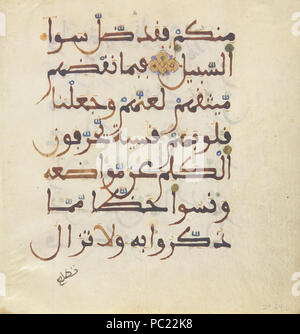 منكم فقد ضل سوا
السبيل فبما نقضهم
ميثقهم لعنهم وجعلنا
قلوبهم قسية يحرفون
الكلم عن مواضعه
ونسوا حظا مما
ذكروا به ولا تزال
تطلع
alamy
PC22K8